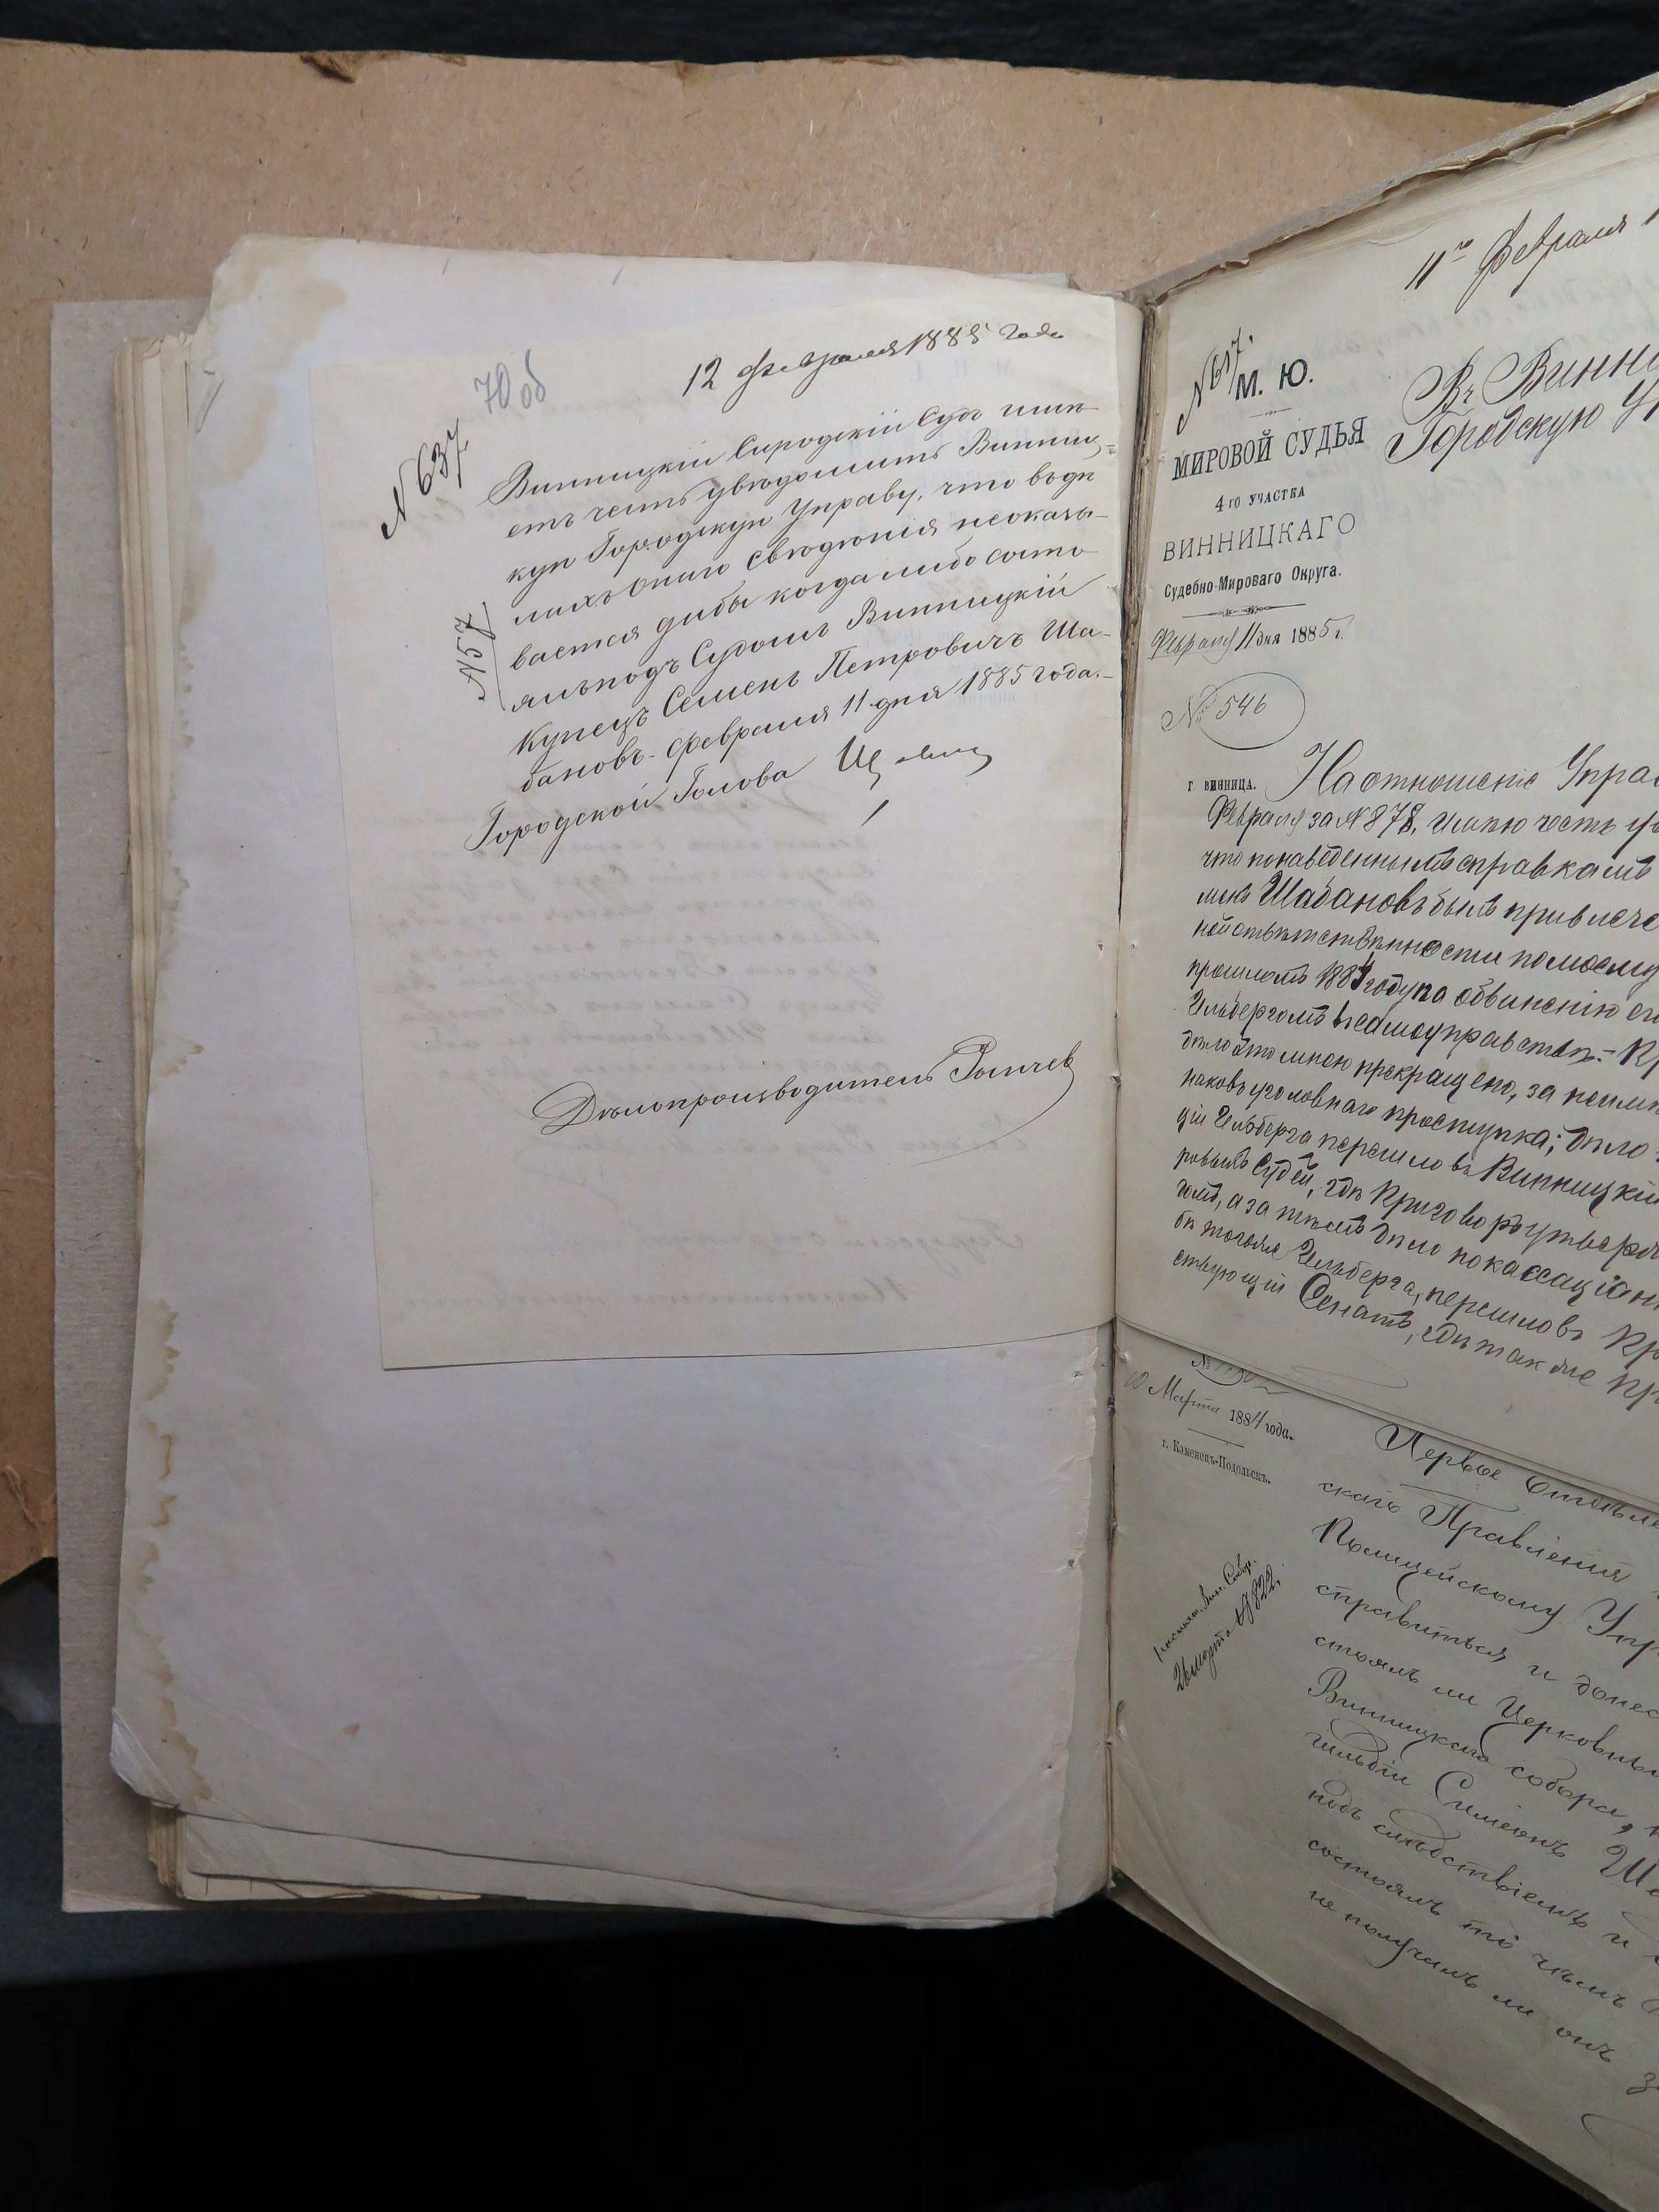 70 об
12 февраля 1885 года
№ 637
Винницкій Сиродскій Судъ имѣ-
етъ честь увѣдомить Винниц-
кую Городскую Управу, что въ дѣ-
лахъ онаго свѣдѣнія неоказы-
вается дабы когда либо состо-
ялъ подъ Судомъ Винницкій
Купецъ Семенъ Петровичъ Ша-
бановъ. Февраля 11 дня 1885 года.-
№ 57
Городской Голова
Дѣлопроизводитель
11го Февраля
№ 617.
М. Ю.
МИРОВОЙ СУДЬЯ
4-го УЧАСТКА
ВИННИЦКАГО
Судебно-Мироваго Округа.
Февраля 11 дня 1885 г.
№ 546
г. ВИННИЦА.
Въ Винни
Городскую Уп
На отношеніе Упра
Февраля за № 878, имѣю честь ув
что по наведеннымъ справкамъ
менъ Шабановъ былъ привлече
ной отвѣтственности по моему
прошломъ 1884 году по обвиненію его
Ильбергомъ въ самоуправствѣ.- Пр
дѣло это мною прекращено, за неимѣ
наковъ уголовнаго проступка; дѣло
ціи Ильберга перешло въ Винницкій
ровыхъ Судей, гдѣ Приговоръ утверж
томъ, а за тѣмъ дѣло по кассаціон
бѣ тогоже Ильберга, перешло въ Пр
ствующій Сенатъ, гдѣ также пр
Марта 1884 года.
г. Каменецъ-Подольскъ.
26 марта № 822.
Первое Отдѣле
скаго Правленія
Полицейскому Упр
справиться и донес
стоялъ ли Церковны
Винницкаго собора,
гильдіи Симеонъ Ша
подъ слѣдствіемъ и
состоялъ то чѣмъ
не получалъ ли онъ